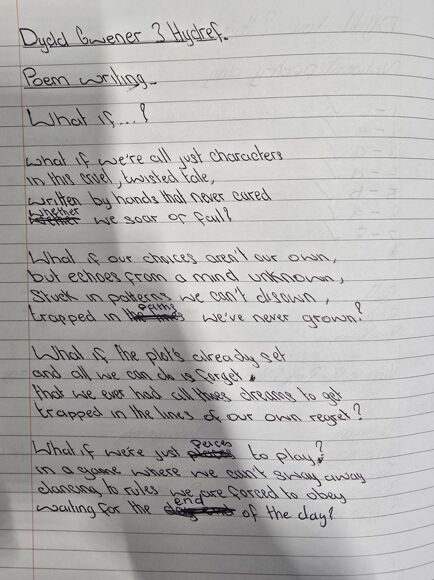 Dydd Gwener 3 Hydref.
Poem writing.
What if...?
What if we're all just characters
in this cruel, twisted tale,
written by hands that never cared
whether we soar or fail?
What if our choices aren't our own,
but echoes from a mind unknown,
Stuck in patterns we can't disown,
trapped in paths we've never grown?
What if the plot's already set
and all we can do is forget,
that we ever had all these dreams to get
trapped in the lines of our own regret?
What if we're just peices to play?
in a game where we can't sway away
dancing to rules we are forced to obey
waiting for the end of the day?